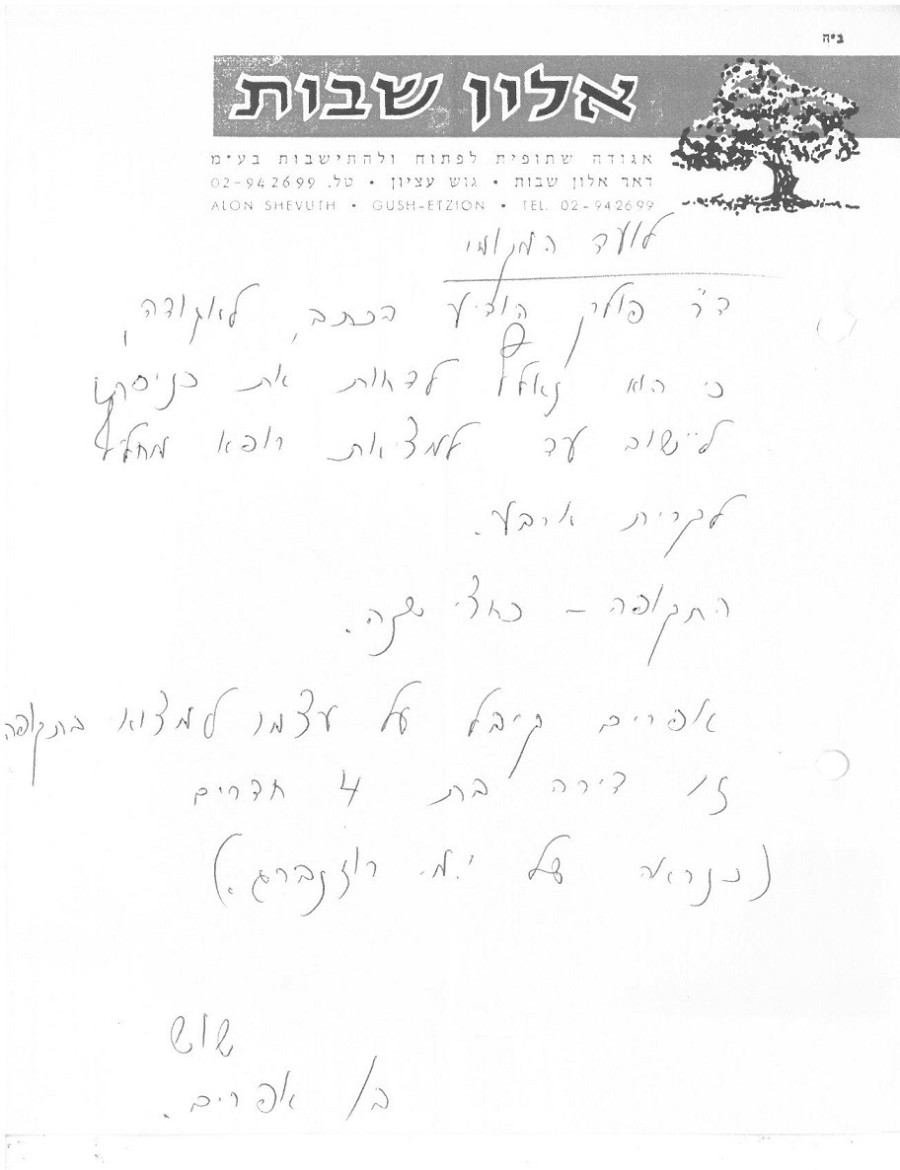 ב"ה
אלון שבות
אגודה שתופית לפתוח ולהתישבות בע"מ
דאר אלון שבות • גוש עציון • טל. 02-942699
ALON SHEVUTH • GUSH-ETZION • TEL. 02-942699
לועד המקומי
ד"ר פולק הודיע בכתב, לאגודה,
כי הוא נאלץ לדחות את כניסתו
ליישוב עד למציאת רופא מחליף
לקרית ארבע.
התקופה – כחצי שנה.
אפרים קיבל על עצמו למצוא בתקופה
זו דירה בת 4 חדרים
(כנראה של י.מ. רוזנברג.)
שוש
ב/ אפרים.